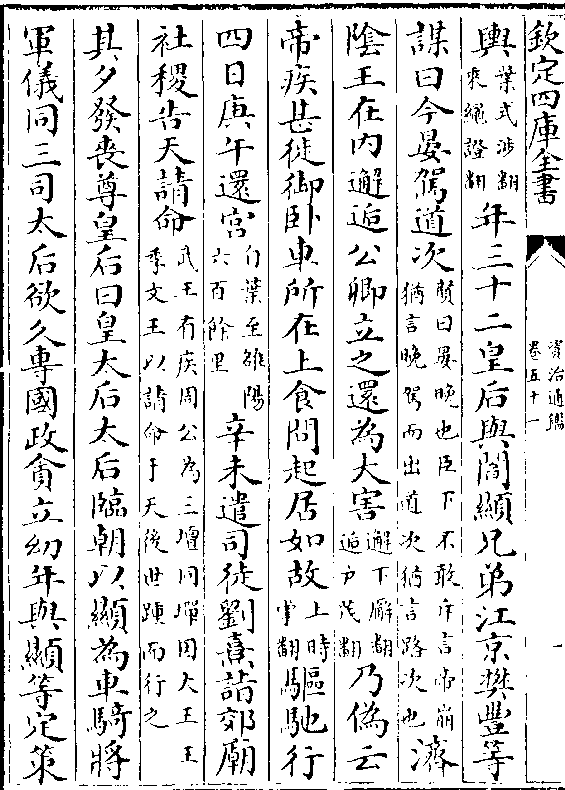 欽定四庫全書
資治通鑑
卷五十一
一
輿葉式涉翻
乗繩證翻年三十二皇后與閻顯兄弟江京樊豐等
謀曰今晏駕道次賢曰晏晚也臣下不敢斥言帝崩
猶言晚駕而出道次猶言路次也濟
陰王在内邂逅公卿立之還為大害邂下廨翻
逅户茂翻乃偽云
帝疾甚徙御卧車所在上食問起居如故上時
掌翻驅馳行
四日庚午還宫自葉至雒陽
六百餘里辛未遣司徒劉熹詣郊廟
社稷告天請命武王有疾周公為三壇同墠因大王王
季文王以請命于天後世踵而行之
其夕發喪尊皇后曰皇太后太后臨朝以顯為車騎將
軍儀同三司太后欲久專國政貪立幼年與顯等定策